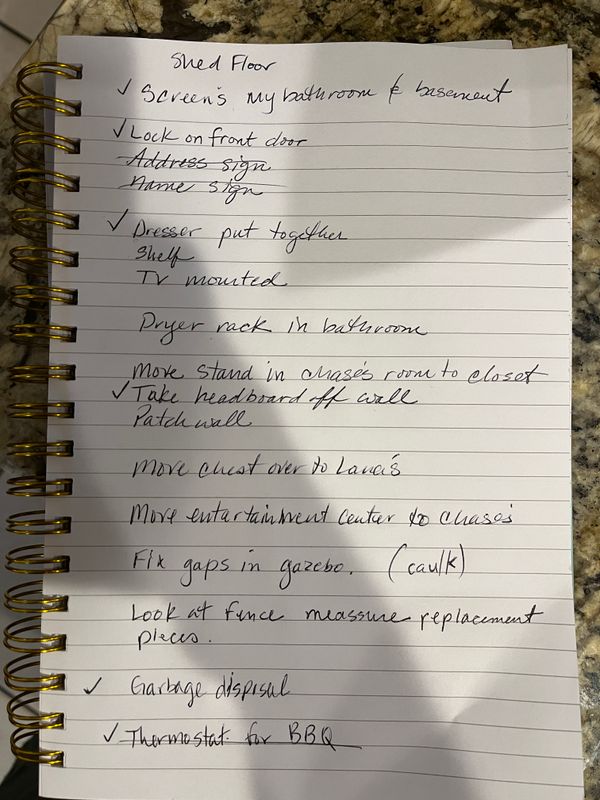 Shed Floor
✓ Screen's my bathroom & basement
✓ Lock on front door
Address sign
Name sign
✓ Dresser put together
Shelf
TV mounted
Dryer rack in bathroom
Move stand in chase's room to closet
✓ Take headboard off wall
Patch wall
Move chest over to Lana's
Move entertainment center to chase's
Fix gaps in gazebo. (caulk)
Look at fence meassure replacement
pieces.
✓ Garbage disposal
✓ Thermostat for BBQ